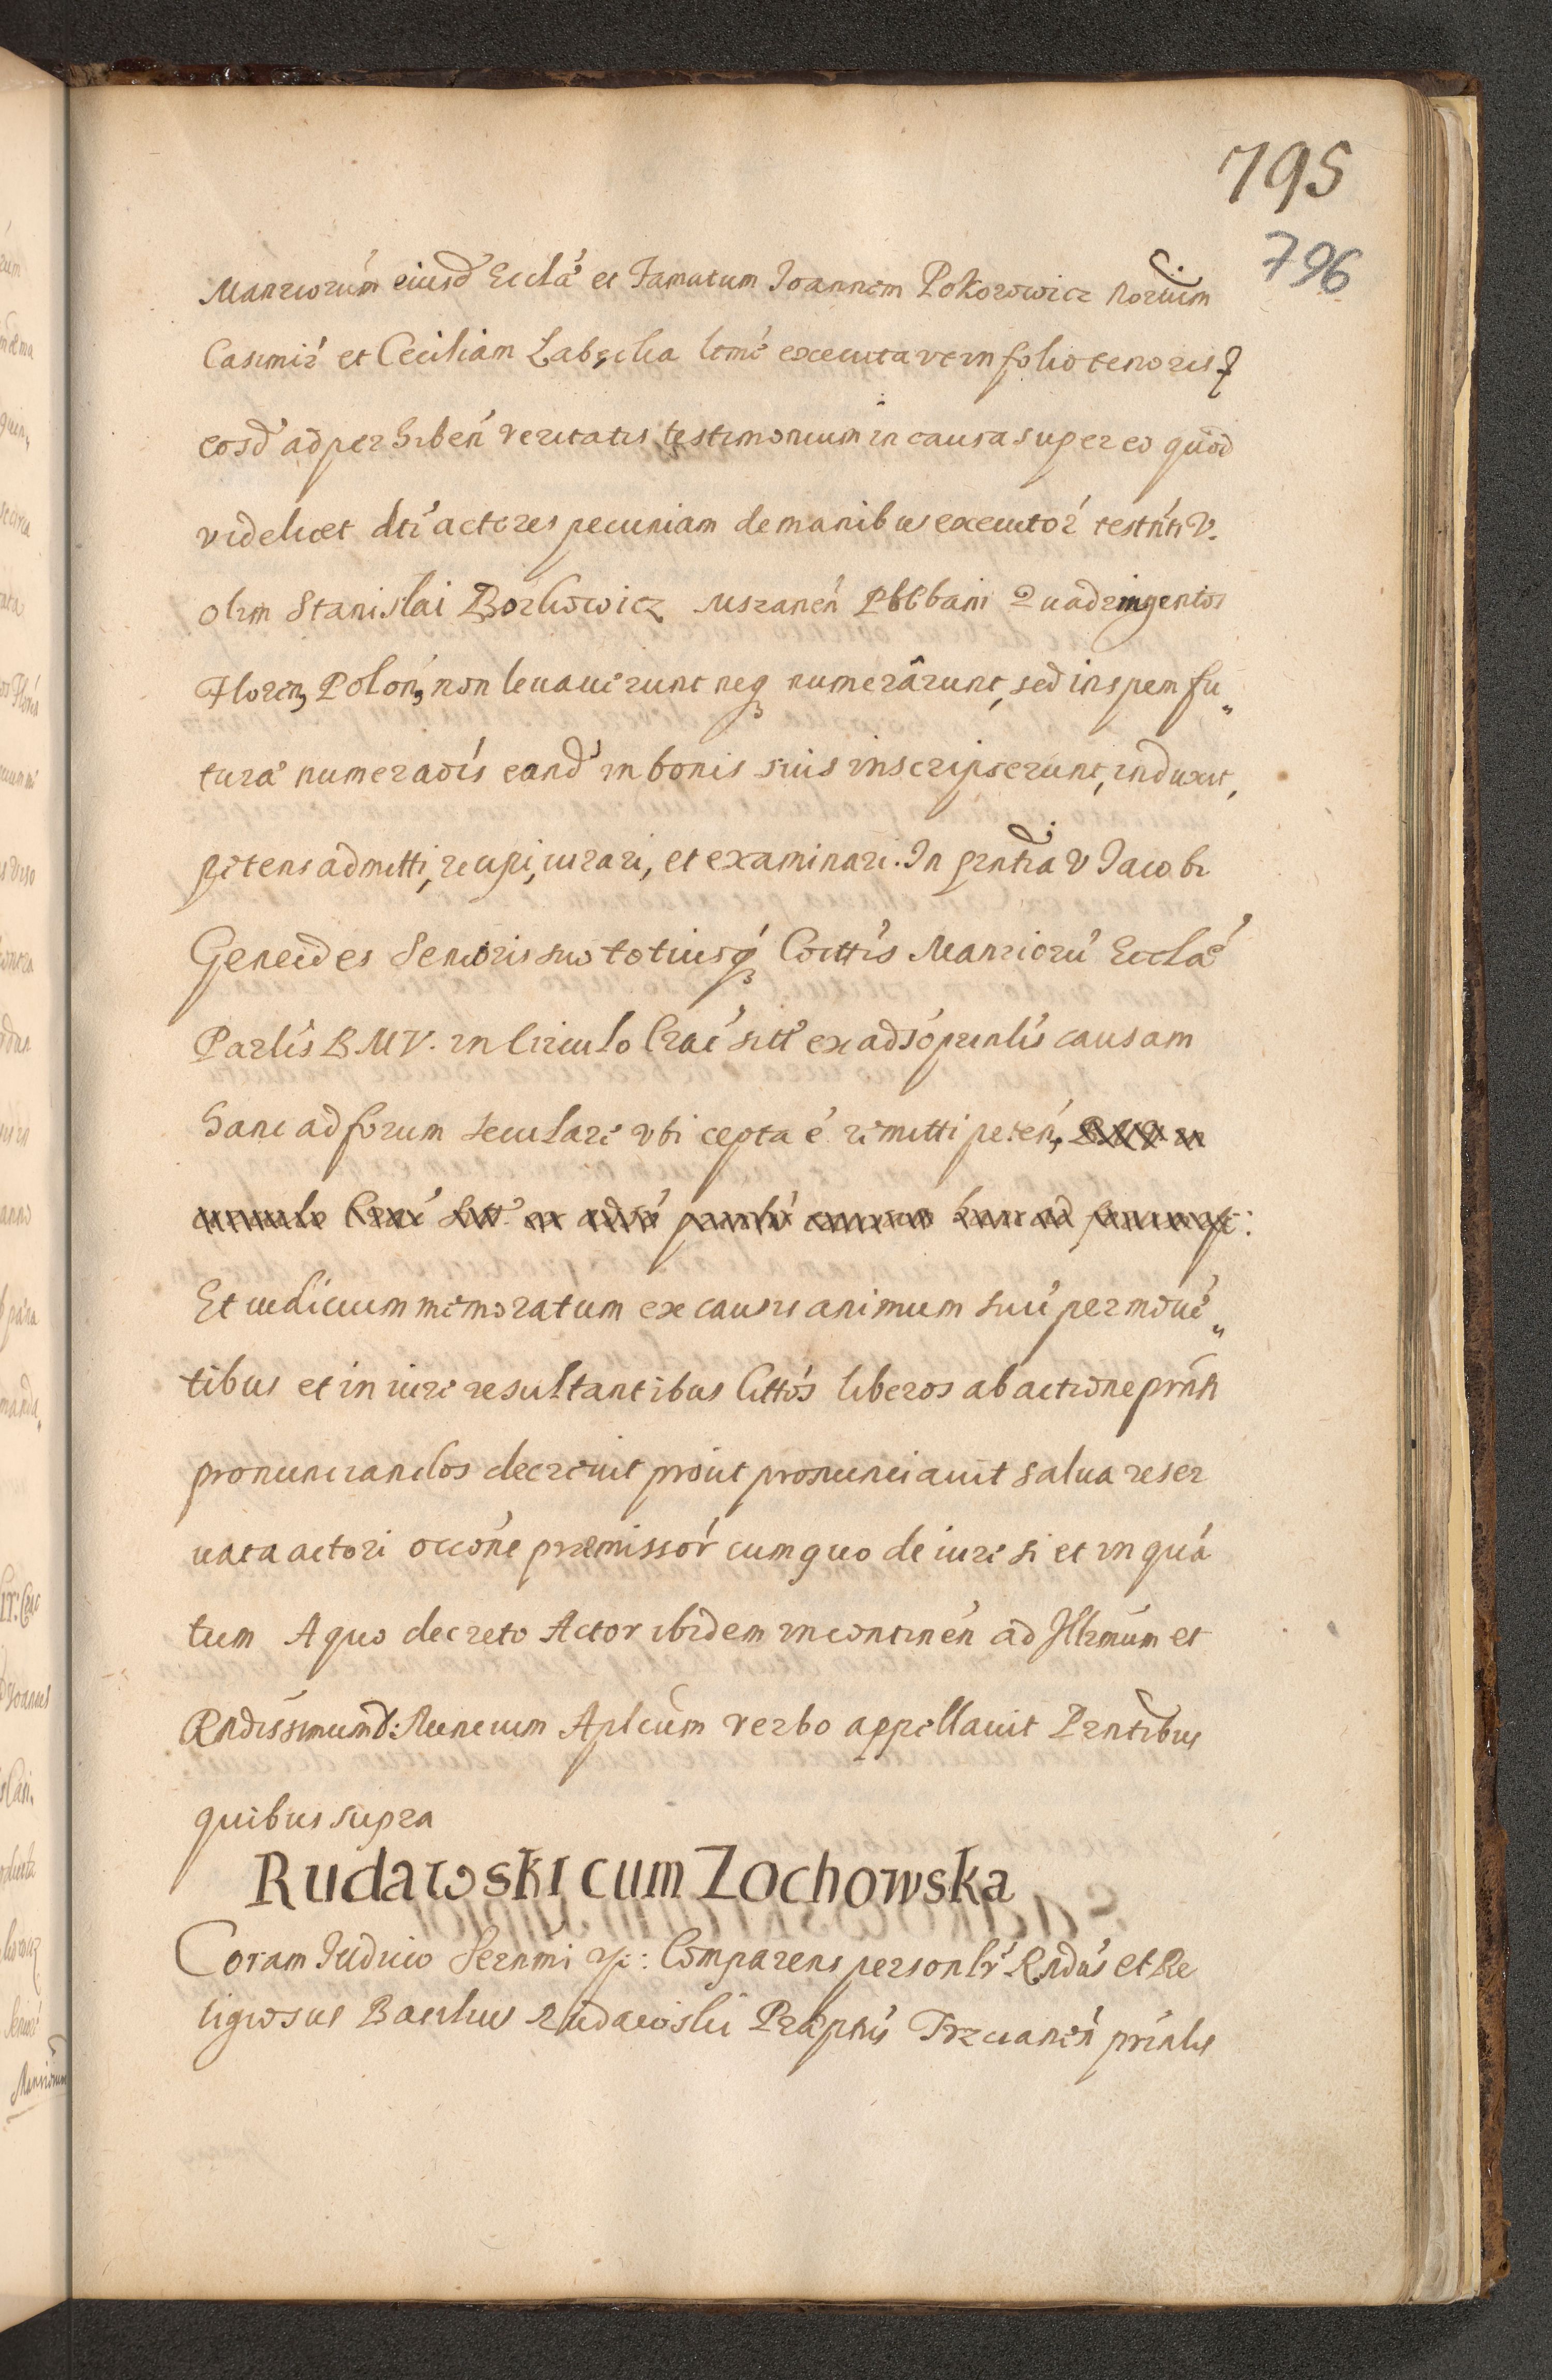 795
796
Manriorum eiusd Ecclae et Famatum Joannem Pokorowicz Noruim
Casimir et Ceciliam Labęcka ltme executa vt in folio tenoris q
eosd ad perhiben veritatis testimonium in causa super eo quod
videlicet dti actores pecuniam de manibus executor testnti V.
olim Stanislai Borkowicz Mszanen Plbbani Quadringentos
Floren, Polon, non leuauerunt neq numerârunt, sed in spem fu„
tura numeraois eand in bonis suis inscripserunt, induxit,
petens admitti, recipi, iurari, et examinari. In prntia V Jacobi
Geneides Senioris suo totiusq Coettis Manrioru Ecclae
Parlis B M V. in Circulo Crac sitt ex adso prinlis causam
hanc ad forum seculare vti cepta e remitti peten, B V M in
circulo Crac sitt ex adso prinlis causam hanc ad forum sc:
Et iudicium memoratum ex causis animum suu permoue„
tibus et in iure resultantibus Cittos liberos ab actione prnti
pronunciandos decreuit prout pronunciauit salua reser
uata actori occone præmissor cum quo de iure si et in qua
tum A quo decreto Actor ibidem incontinen ad Illmum et
Rndissimum d: Nuncium Aplcum verbo appellauit Prntibus
quibus supra
Rudawski cum Zochowska
Coram Judicio Sernmi rp: Comparens personlr Rndus et Re
ligiosus Basilius Rudawski Præptus Trzcianen prinlis